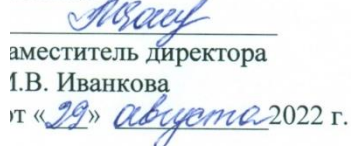 аместитель директора
.В. Иванкова
от «29» августа 2022 г.